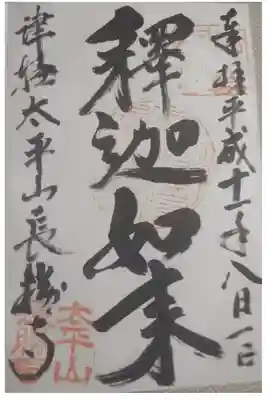 奉拝平成十一年八月一日
釋迦如来
津軽太平山長勝寺